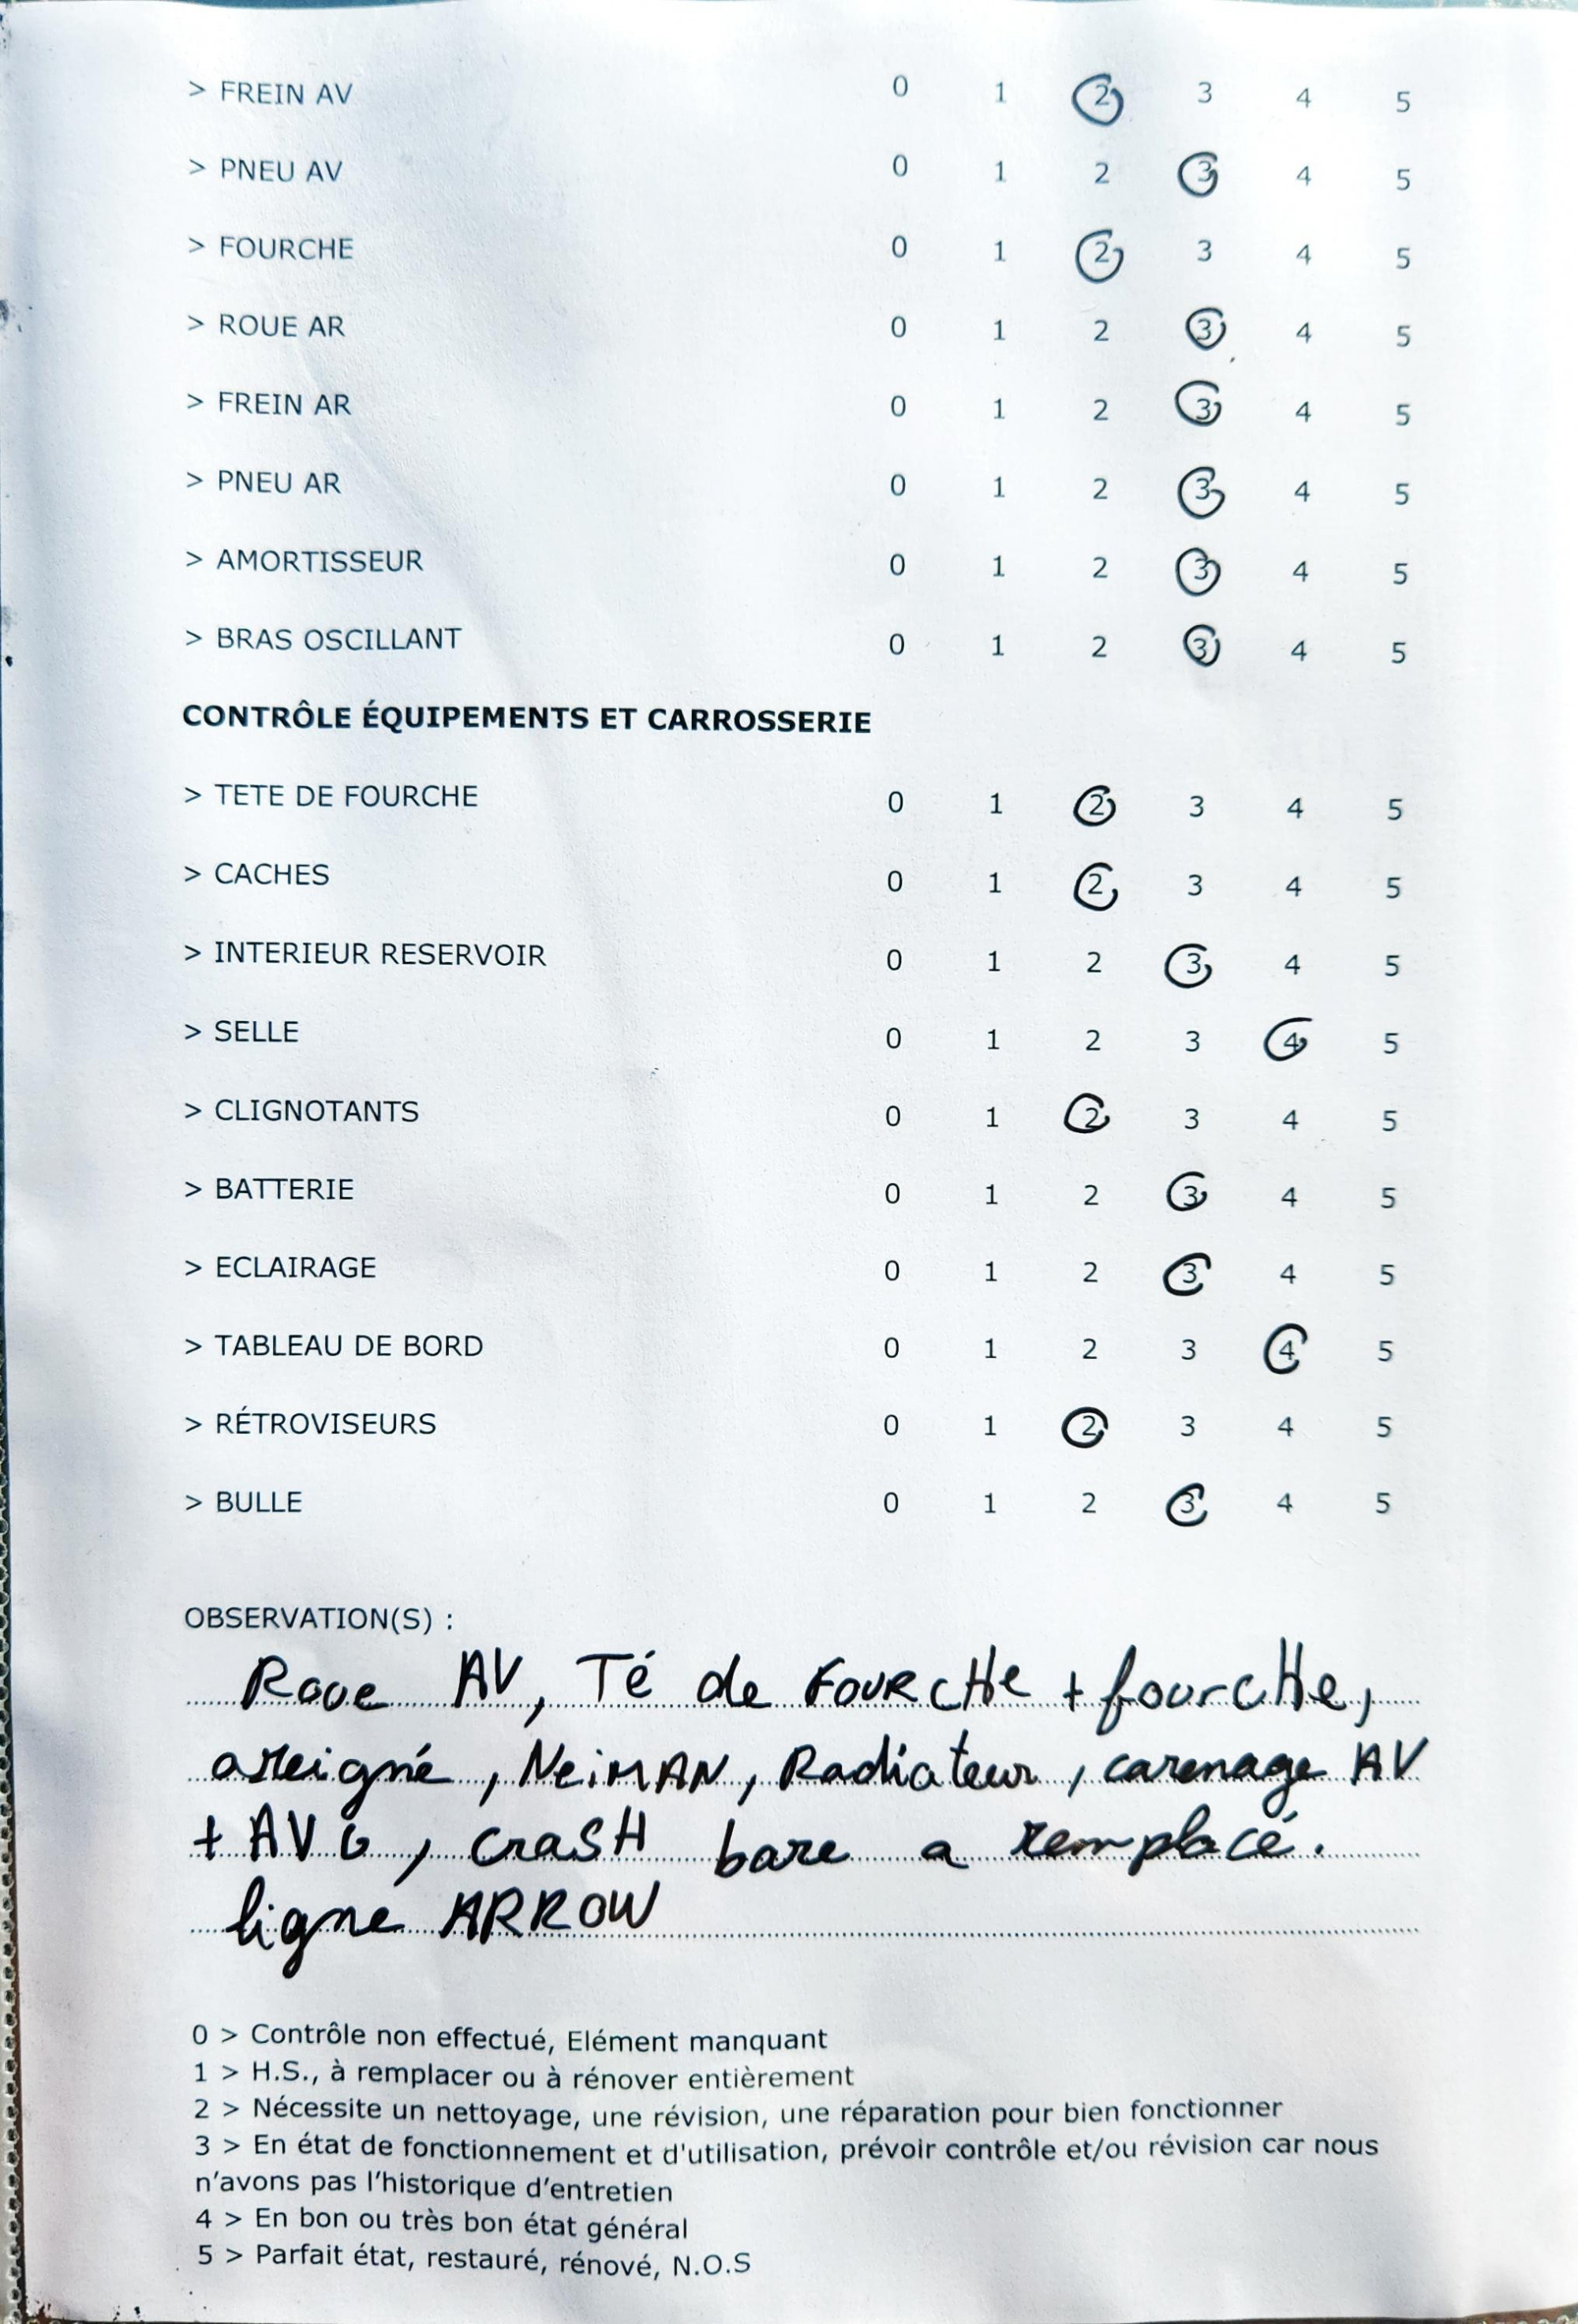 > FREIN AV 0 1 2 3 4 5
> PNEU AV 0 1 2 3 4 5
> FOURCHE 0 1 2 3 4 5
> ROUE AR 0 1 2 3 4 5
> FREIN AR 0 1 2 3 4 5
> PNEU AR 0 1 2 3 4 5
> AMORTISSEUR 0 1 2 3 4 5
> BRAS OSCILLANT 0 1 2 3 4 5
CONTRÔLE ÉQUIPEMENTS ET CARROSSERIE
> TETE DE FOURCHE 0 1 2 3 4 5
> CACHES 0 1 2 3 4 5
> INTERIEUR RESERVOIR 0 1 2 3 4 5
> SELLE 0 1 2 3 4 5
> CLIGNOTANTS 0 1 2 3 4 5
> BATTERIE 0 1 2 3 4 5
> ECLAIRAGE 0 1 2 3 4 5
> TABLEAU DE BORD 0 1 2 3 4 5
> RÉTROVISEURS 0 1 2 3 4 5
> BULLE 0 1 2 3 4 5
OBSERVATION(S) :
Roue AV, Té de FOURCHe + fourcHe,
areigné, NeiMAN, Radiateur, carenage AV
+ AV G, craSH bare a remplacé.
ligne ARROW
0 > Contrôle non effectué, Elément manquant
1 > H.S., à remplacer ou à rénover entièrement
2 > Nécessite un nettoyage, une révision, une réparation pour bien fonctionner
3 > En état de fonctionnement et d'utilisation, prévoir contrôle et/ou révision car nous
n'avons pas l'historique d'entretien
4 > En bon ou très bon état général
5 > Parfait état, restauré, rénové, N.O.S